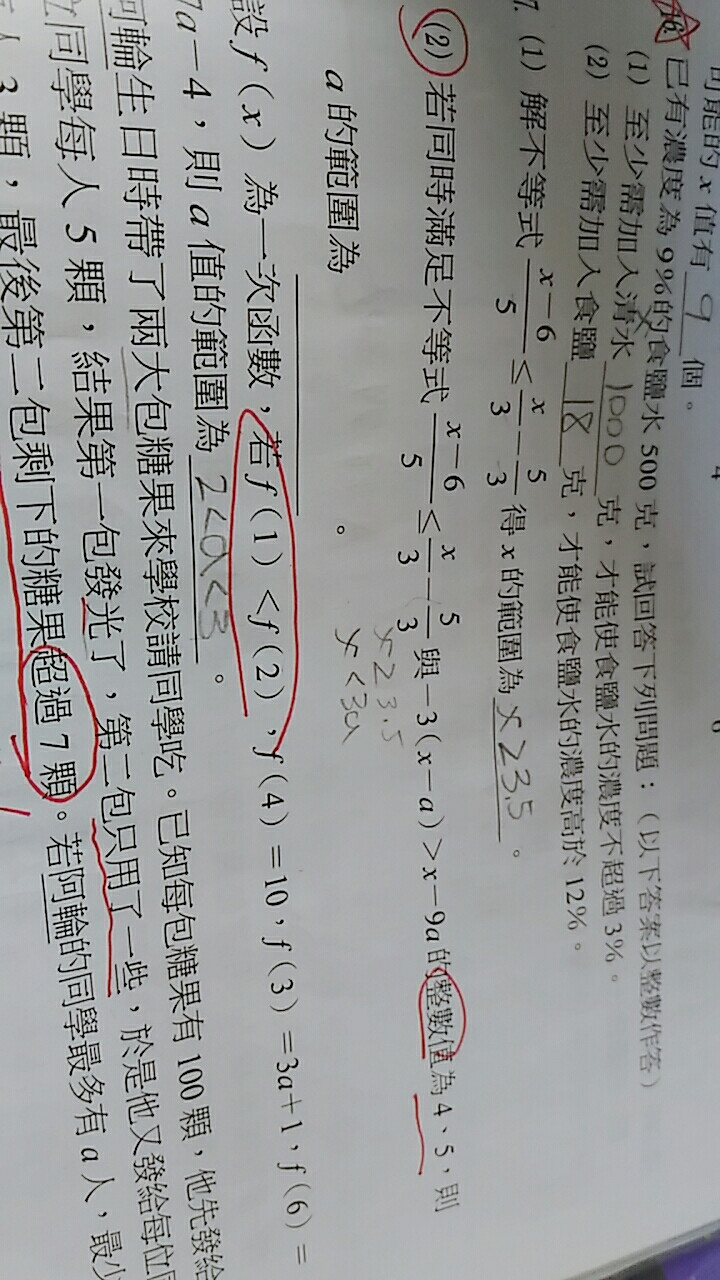 可能的 x 值有 9 個。
16. 已有濃度為 9%的食鹽水 500 克，試回答下列問題：（以下答案以整數作答）
(1) 至少需加入清水 1000 克，才能使食鹽水的濃度不超過 3%。
(2) 至少需加入食鹽 18 克，才能使食鹽水的濃度高於 12%。
7. (1) 解不等式 x－6/5 ≤ x/3 － 5/3 得 x 的範圍為 x≥3.5 。
(2) 若同時滿足不等式 x－6/5 ≤ x/3 － 5/3 與－3(x－a)＞x－9a 的整數值為 4、5，則
x≥3.5
a 的範圍為 。
x<3a
設 f(x) 為一次函數，若 f(1)＜f(2)，f(4)＝10，f(3)＝3a＋1，f(6)＝
7a－4，則 a 值的範圍為 2<a<3 。
阿輪生日時帶了兩大包糖果來學校請同學吃。已知每包糖果有 100 顆，他先發給
同學每人 5 顆，結果第一包發光了，第二包只用了一些，於是他又發給每位
人 3 顆，最後第二包剩下的糖果超過 7 顆。若阿輪的同學最多有 a 人，最少